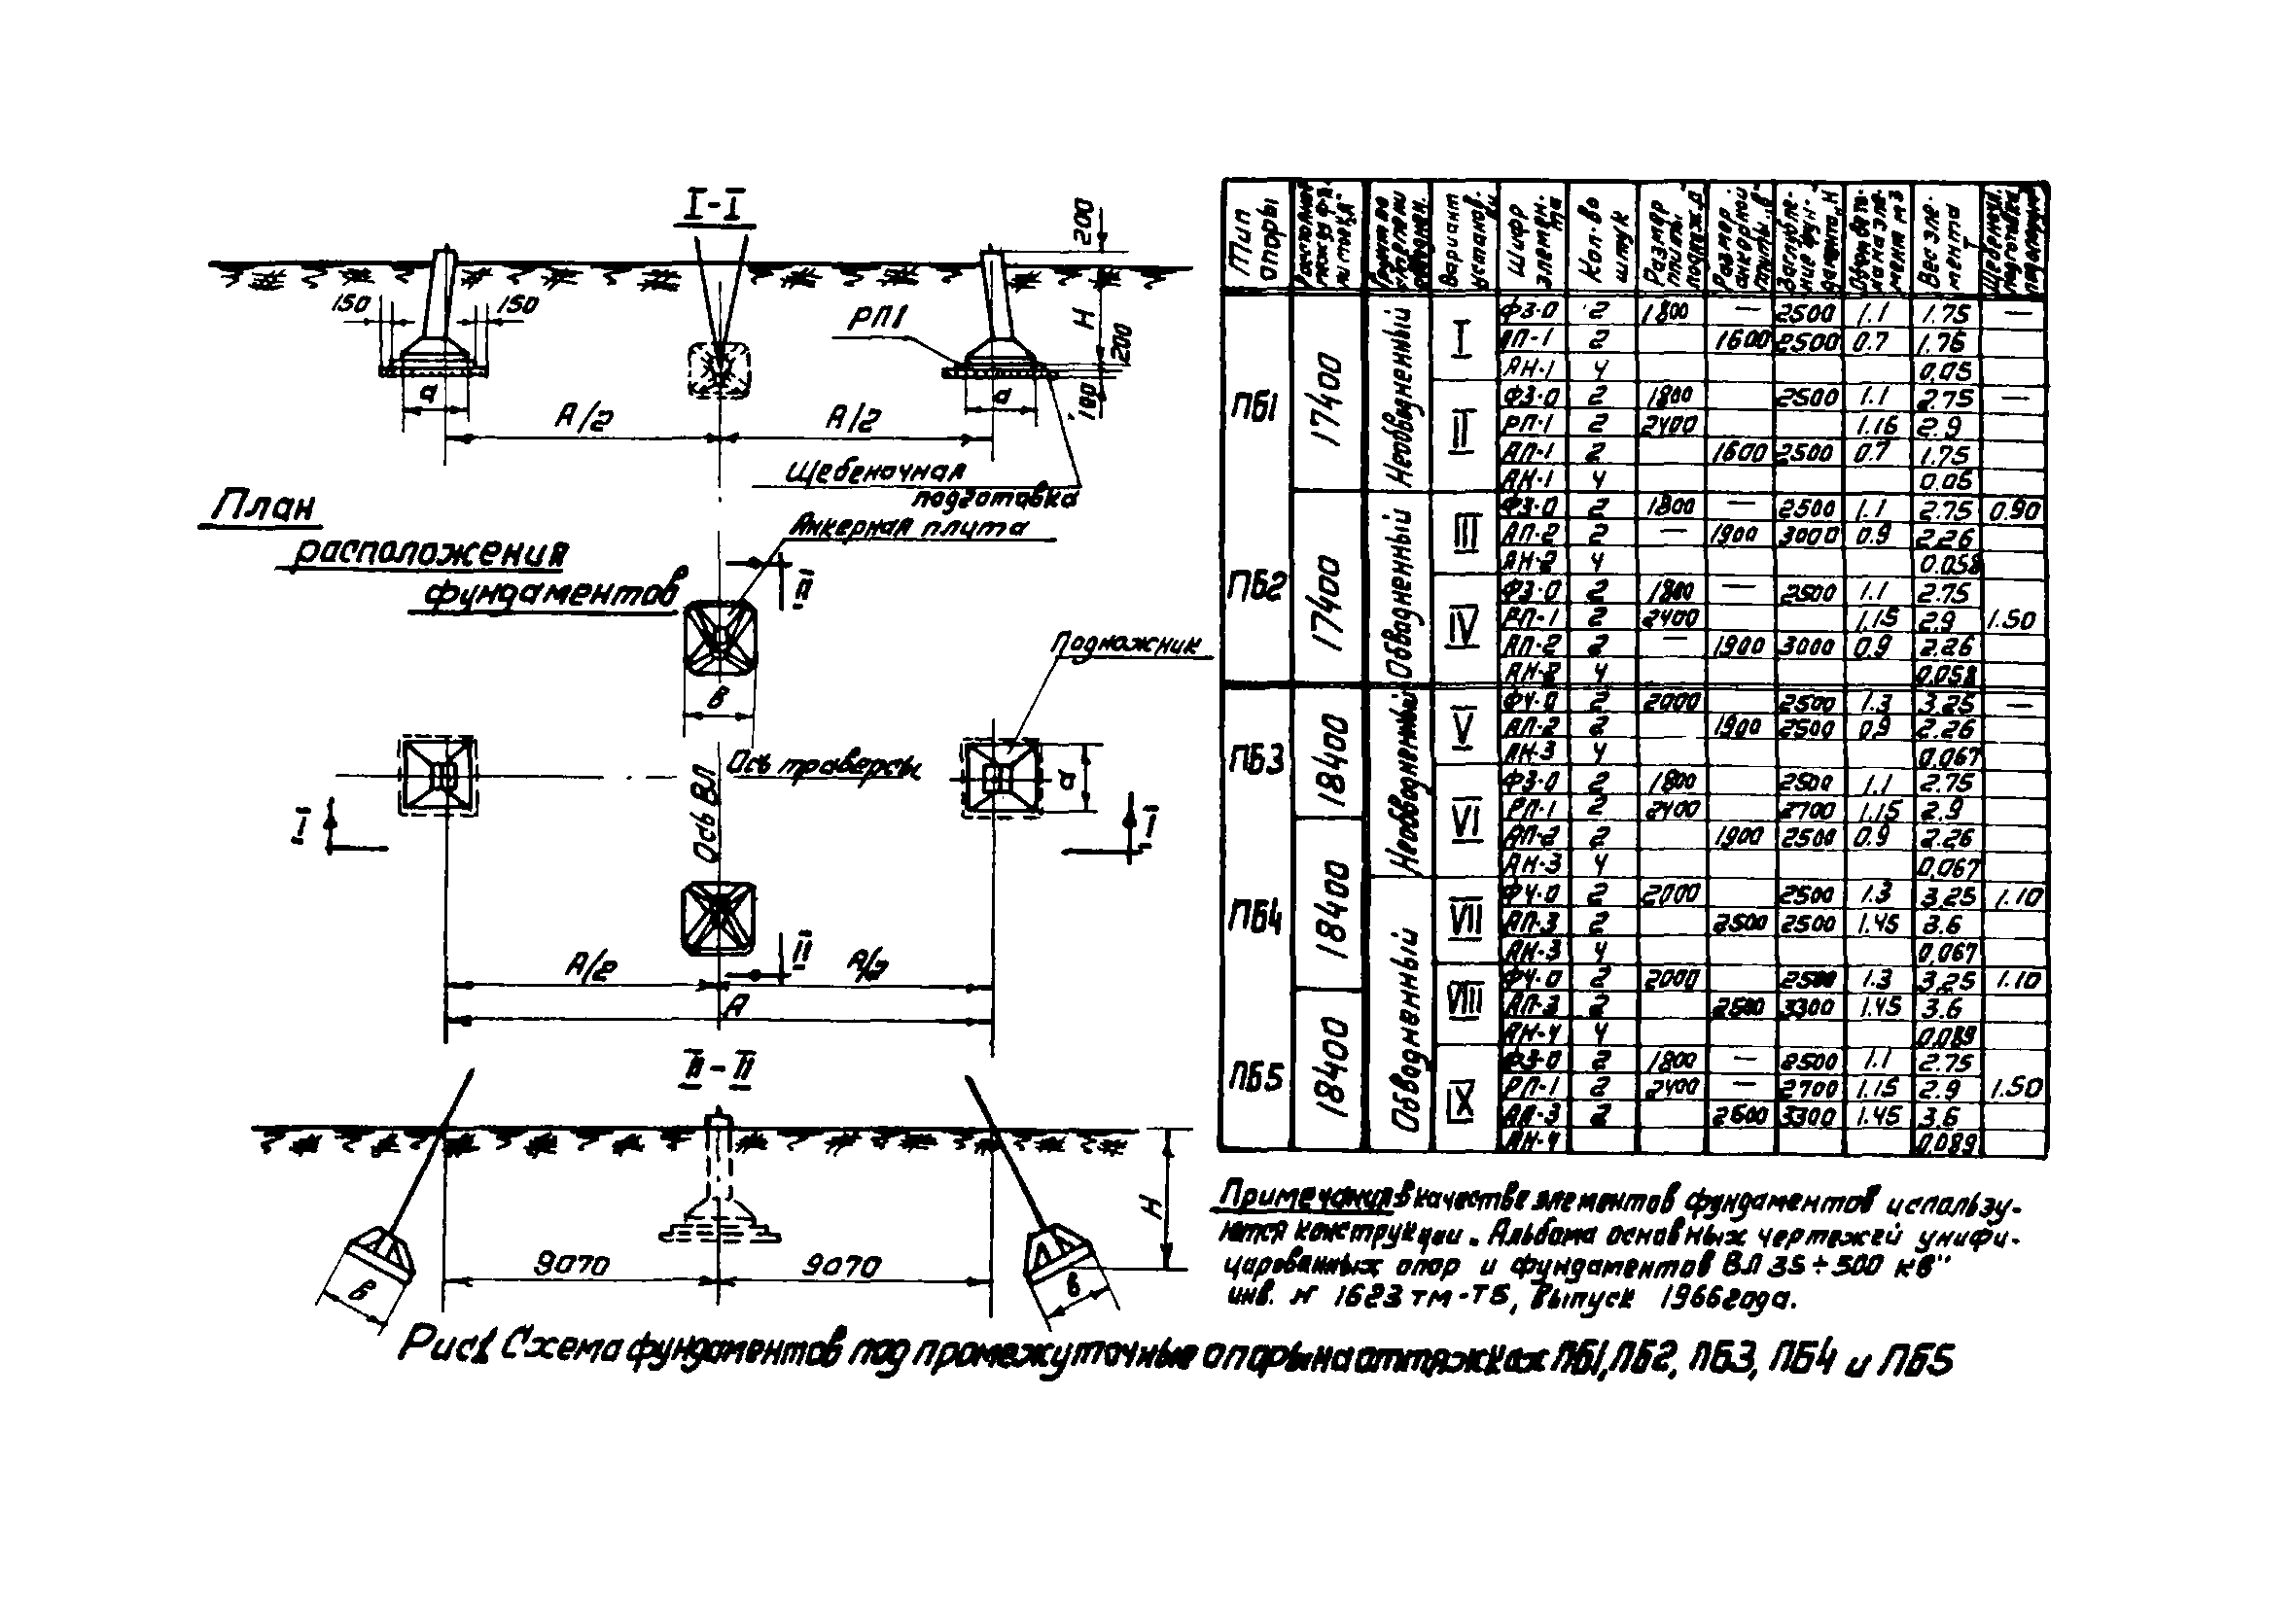 I-I
200
150
150
РП1
Н
200
100
а
а
А/2
А/2
Щебеночная
подготовка
План
расположения
фундаментов
Анкерная плита
II
Подножник
В
Ось траверсы
Ось ВЛ
а
I
I
II
А/2
А/2
А
II-II
Н
9070
9070
В
в
Тип опоры
Вариант установ.
Шифр элемен-та
Кол-во штук
Размер плиты
Размер анкорной плиты „в"
Вес эле-мента Т
ПБ1 17400 Необводненный
I
Ф3-0 2 1800 — 2500 1.1 1.75 —
АП-1 2 1600 2500 0.7 1.76
АН-1 4 0,05
II
Ф3-0 2 1800 2500 1.1 2.75 —
РП-1 2 2400 1.16 2.9
АП-1 2 1600 2500 0.7 1.75
АН-1 4 0.05
ПБ2 17400 Обводненный
III
Ф3-0 2 1800 — 2500 1.1 2.75 0.90
АП-2 2 — 1900 3000 0.9 2.26
АН-2 4 0.058
IV
Ф3-0 2 1800 — 2500 1.1 2.75
РП-1 2 2400 1.15 2.9 1.50
АП-2 2 — 1900 3000 0.9 2.26
АН-2 4 0,058
ПБ3 18400 Необводненный
V
Ф4-0 2 2000 2500 1.3 3.25 —
АП-2 2 1900 2500 0,9 2.26
АН-3 4 0.067
VI
Ф3-0 2 1800 2500 1.1 2.75
РП-1 2 2400 2700 1.15 2.9
АП-2 2 1900 2500 0.9 2.26
АН-3 4 0,067
ПБ4 18400 Обводненный
VII
Ф4-0 2 2000 2500 1.3 3,25 1.10
АП-3 2 2500 2500 1.45 3.6
АН-3 4 0,067
VIII
Ф4-0 2 2000 2500 1.3 3,25 1.10
АП-3 2 2500 3300 1.45 3.6
АН-4 4 0,089
ПБ5 18400
IX
Ф3-0 2 1800 — 2500 1.1 2.75
РП-1 2 2400 — 2700 1.15 2.9 1.50
АП-3 2 2600 3300 1.45 3.6
АН-4 0,089
Примечания: В качестве элементов фундаментов использу-
ются конструкции „Альбома основных чертежей унифи-
цированных опор и фундаментов ВЛ 35÷500 кв"
инв. № 1623 тм-Т5, Выпуск 1966 года.
Рис1 Схема фундаментов под промежуточные опоры на оттяжках ПБ1, ПБ2, ПБ3, ПБ4 и ПБ5